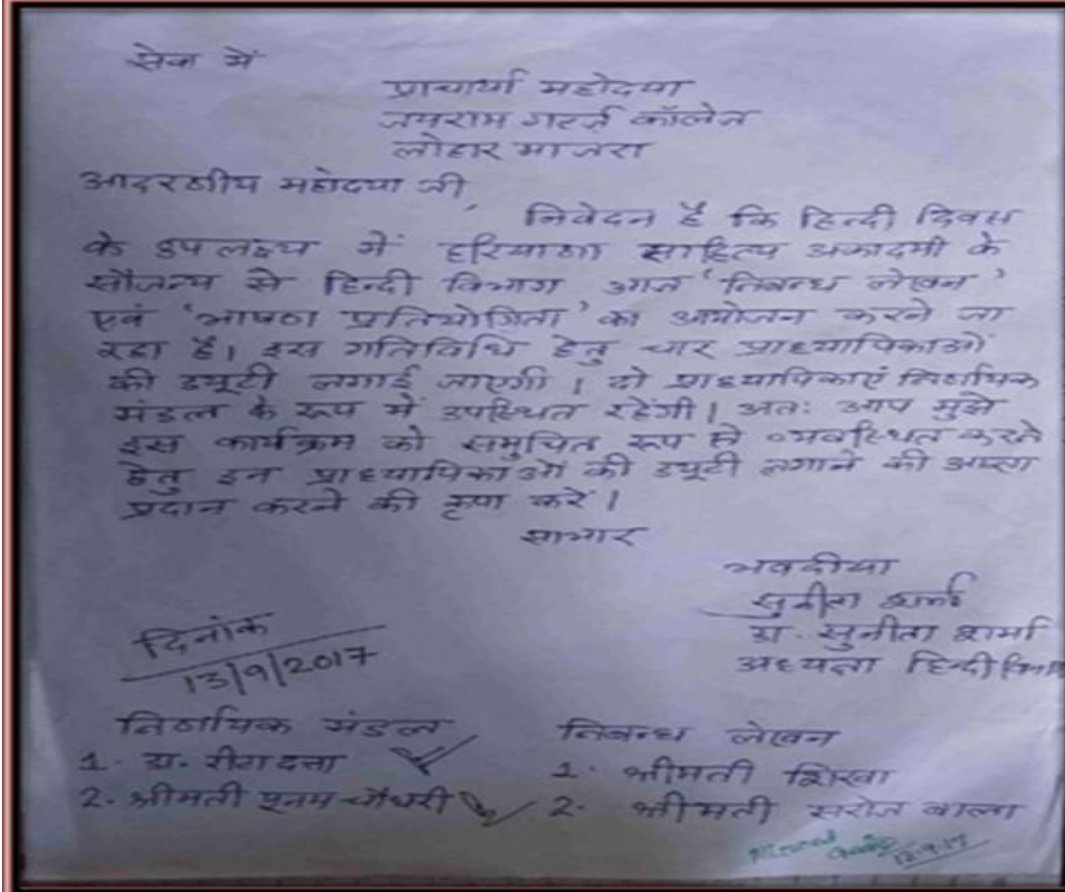 सेवा में
प्राचार्या महोदया
जयराम गर्ल्ज कॉलेज
लोहार माजरा
आदरणीय महोदया जी,
निवेदन है कि हिन्दी दिवस
के उपलक्ष्य में हरियाणा साहित्य अकादमी के
सौजन्य से हिन्दी विभाग आज 'निबन्ध लेखन'
एवं 'भाषण प्रतियोगिता' का आयोजन करने जा
रहा है। इस गतिविधि हेतु चार प्राध्यापिकाओं
की ड्यूटी लगाई जाएगी। दो प्राध्यापिकाएं निर्णायक
मंडल के रूप में उपस्थित रहेंगी। अतः आप मुझे
इस कार्यक्रम को समुचित रूप से व्यवस्थित करने
हेतु इन प्राध्यापिकाओं की ड्यूटी लगाने की आज्ञा
प्रदान करने की कृपा करें।
साभार
भवदीया
सुनीता शर्मा
डा. सुनीता शर्मा
अध्यक्षा हिन्दी विभाग
दिनांक
13/9/2017
निर्णायक मंडल
1. डा. रीटा दत्ता
2. श्रीमती पूनम चौधरी
निबन्ध लेखन
1. श्रीमती शिखा
2. श्रीमती सरोज बाला
Allowed
13.9.17